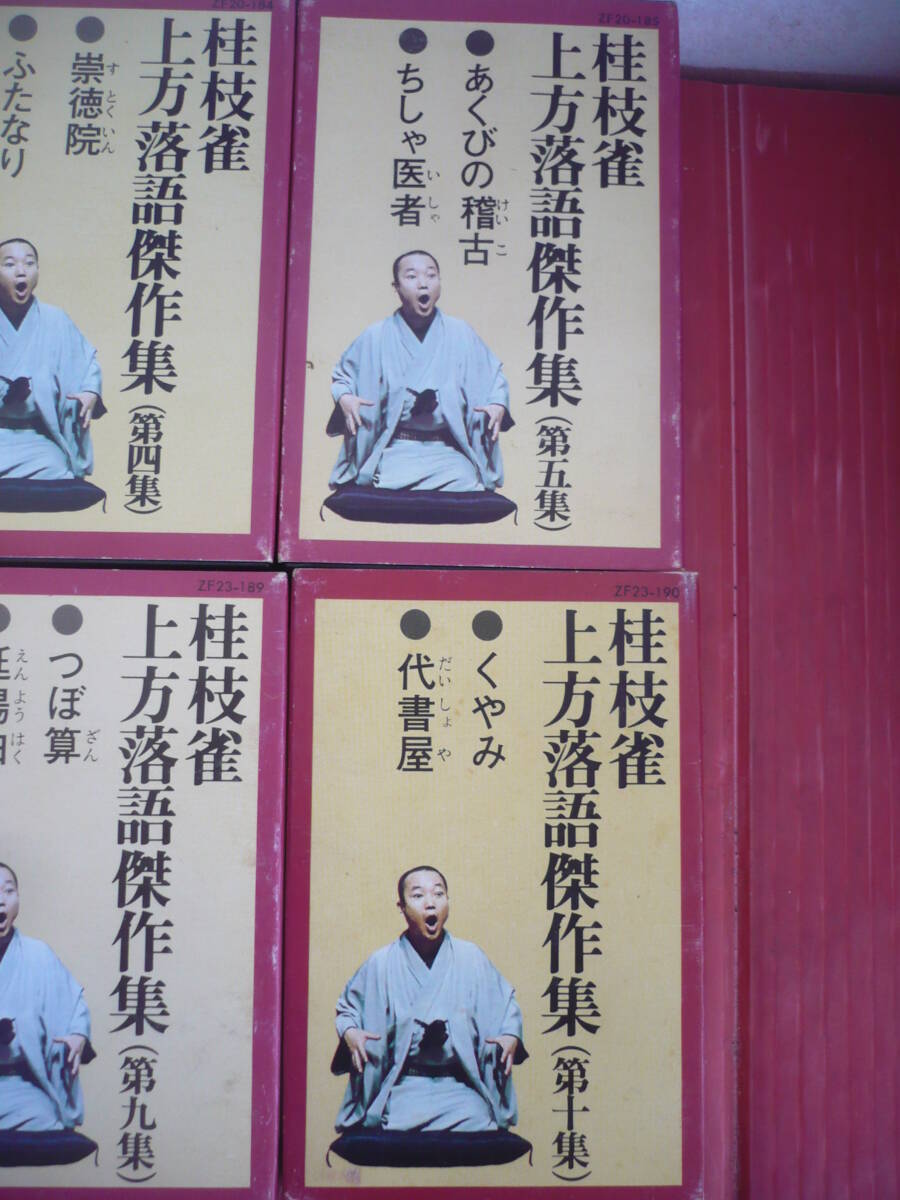 ZF20-184
桂枝雀
上方落語傑作集(第四集)
●崇徳院
すとくいん
●ふたなり
ZF20-185
桂枝雀
上方落語傑作集(第五集)
●あくびの稽古
けいこ
●ちしゃ医者
いしゃ
ZF23-189
桂枝雀
上方落語傑作集(第九集)
●つぼ算
ざん
えんようはく
ZF23-190
桂枝雀
上方落語傑作集(第十集)
●くやみ
●代書屋
だいしょや